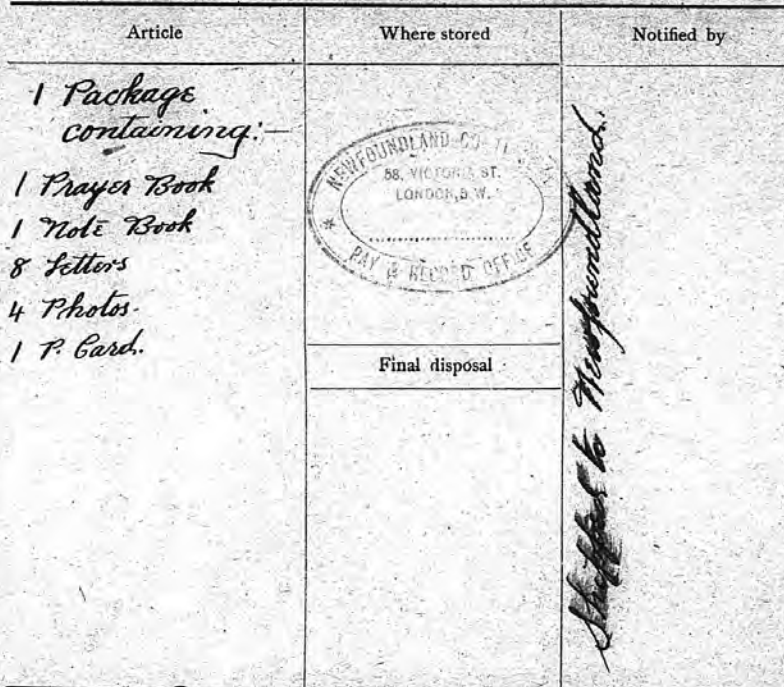 Article
Where stored
Notified by
1 Package
containing:—
1 Prayer Book
1 Note Book
8 Letters
4 Photos.
1 P. Card.
NEWFOUNDLAND
58, VICTORIA ST.
LONDON, S.W.
PAY & RECORD OFFICE
Final disposal
Shipped to Newfoundland.